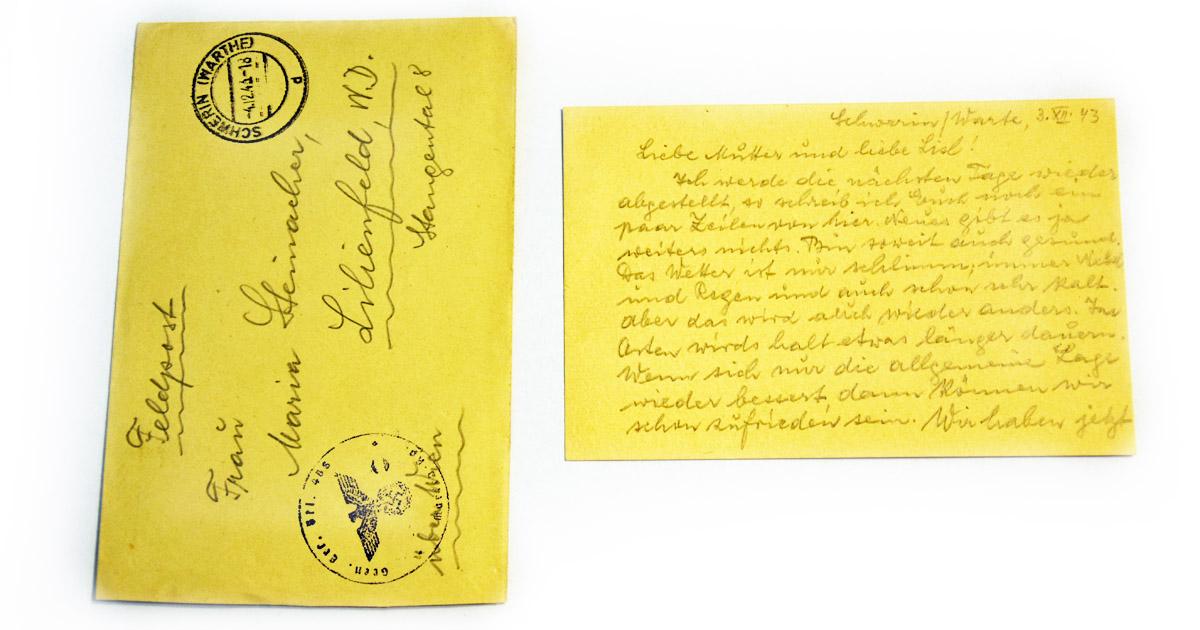 SCHWERIN (WARTHE)
-4.12.43-18
d
Feldpost
Frau
Maria Steinacher,
Lilienfeld, N.D.
Stangental 8
über Wien
Gren. Ers. Btl.
Schwerin/Warte, 3.XII.43
Liebe Mutter und liebe Lisl!
Ich werde die nächsten Tage wieder
abgestellt, so schreib ich Euch noch ein
paar Zeilen von hier. Neues gibt es ja
weiters nichts. Bin soweit auch gesund.
Das Wetter ist nur schlimm, immer Nebel
und Regen und auch schon sehr kalt.
aber das wird auch wieder anders. Im
Osten wirds halt etwas länger dauern.
Wenn sich nur die allgemeine Lage
wieder bessert, dann können wir
schon zufrieden sein. Wir haben jetzt